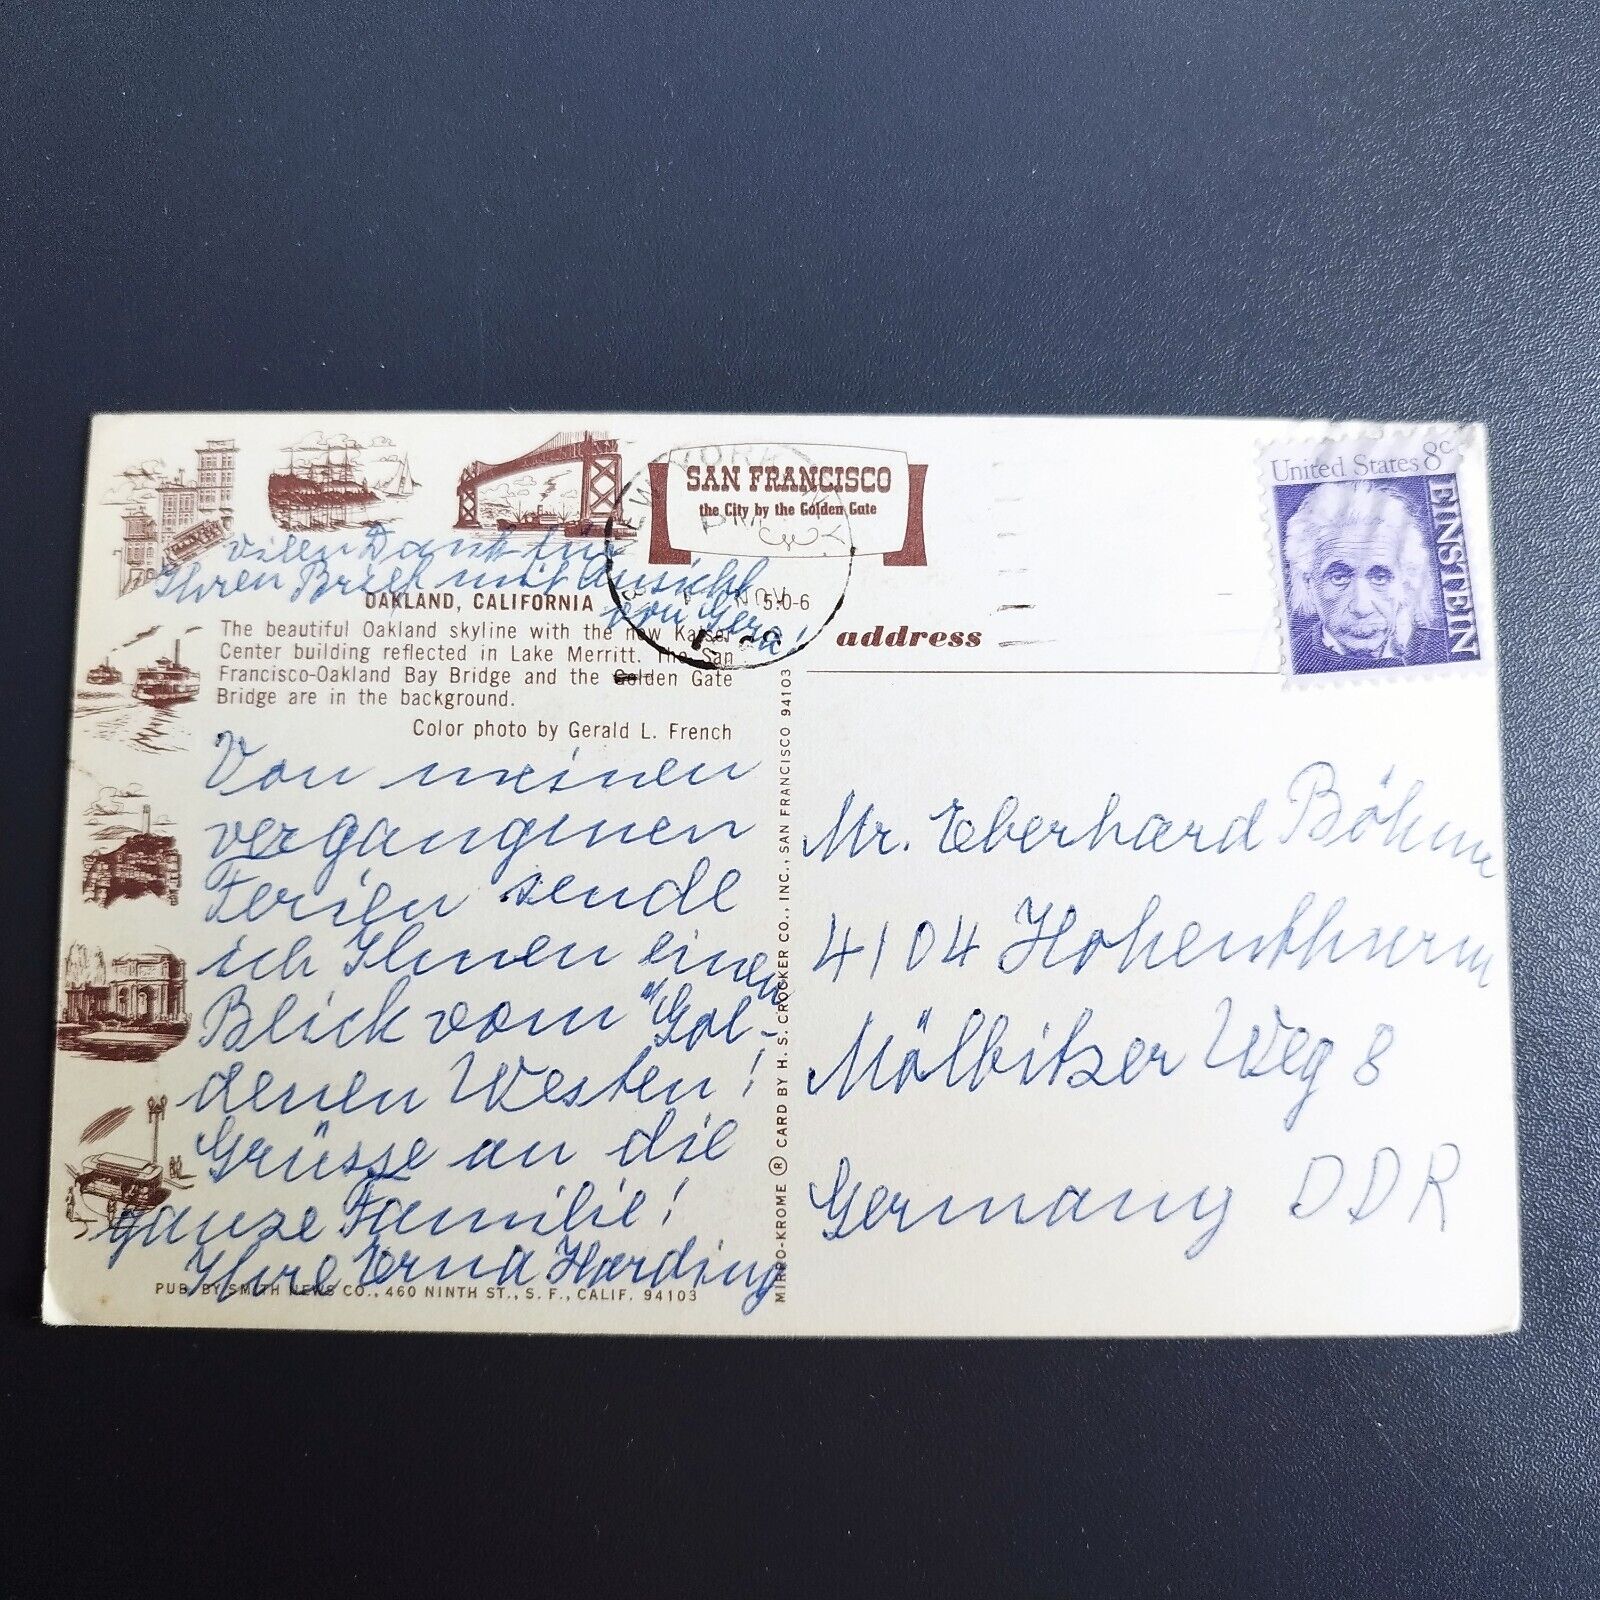 SAN FRANCISCO
the City by the Golden Gate
United States 8c
EINSTEIN
vielen Dank für
Ihren Brief mit Ansicht
von Gera!
OAKLAND, CALIFORNIA
5:0-6
The beautiful Oakland skyline with the new Kaiser
Center building reflected in Lake Merritt. The San
Francisco-Oakland Bay Bridge and the Golden Gate
Bridge are in the background.
Color photo by Gerald L. French
Von meinen
vergangenen
Ferien sende
ich Ihnen einen
Blick vom "Gol-
denen Westen!
Grüsse an die
ganze Familie!
Ihre Erna Harding
PUB. BY SMITH NEWS CO., 460 NINTH ST., S. F., CALIF. 94103
MIRRO-KROME ® CARD BY H. S. CROCKER CO., INC., SAN FRANCISCO 94103
address
Mr. Eberhard Böhme
4104 Hohenthurm
Mölbitzer Weg 8
Germany DDR